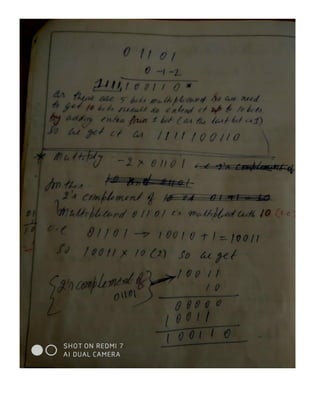 0 1 1 0 1
0 -1 -2
1111,100110 *
as there are 5 bits multiplicand so we need
to get 10 bits result so extend it up to 10 bits
by adding extra four 1 bit (as the last bit is 1)
So we get it as 1111100110
* Multiply -2 x 01101 i.e 2's complement of
10 and 01101
2's complement of
Multiplicand 01101 is multiplied with 10
i.e 01101 → 10010 + 1 = 10011
So 10011 x 10 (2) so we get
{2's complement of 01101} → 10011
10
00000
10011
100110
SHOT ON REDMI 7
AI DUAL CAMERA